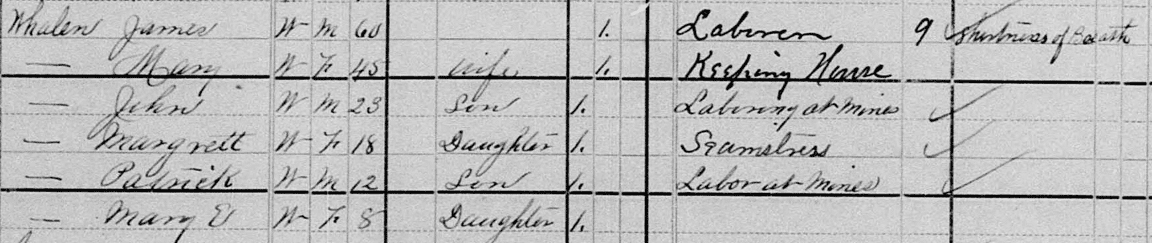 Whalen James W M 60 1. Laborer 9 Shortness of Breath
— Mary W F 45 wife 1. Keeping House
— John W M 23 Son 1. Laboring at Mines
— Margrett W F 18 Daughter 1. Seamstress
— Patrick W M 12 Son 1. Labor at Mines
— Mary E W F 8 Daughter 1.